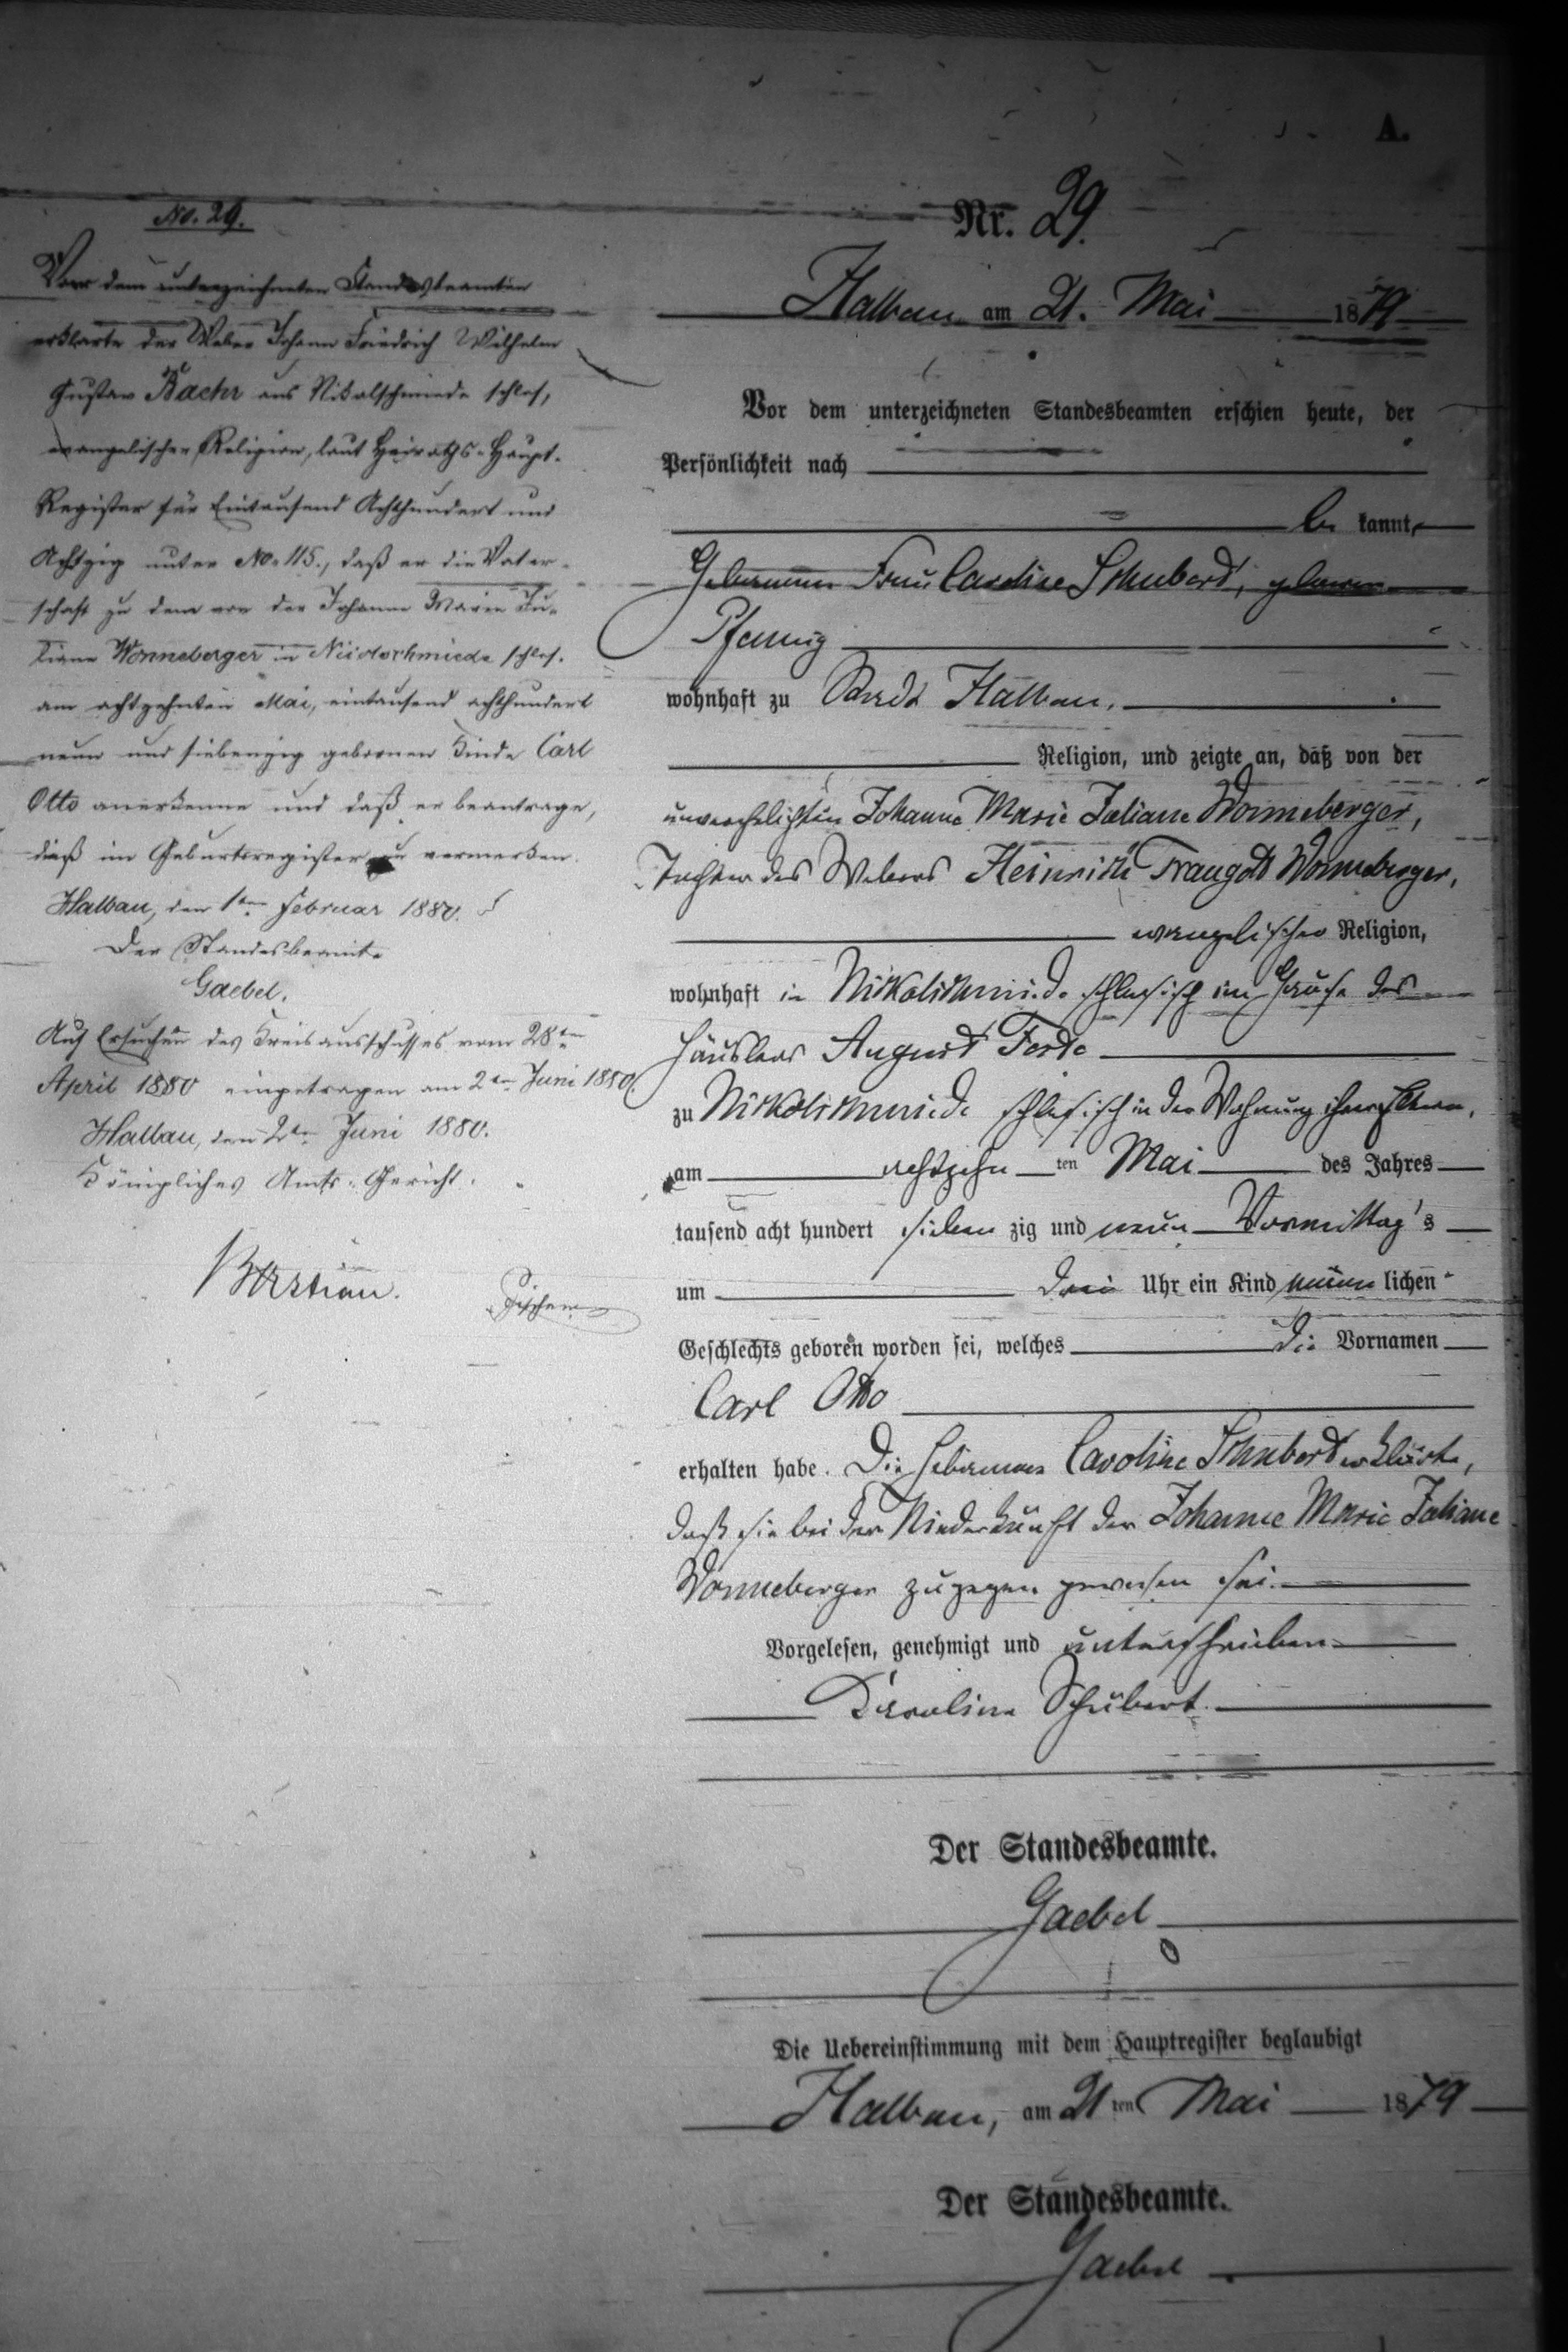 A.
No. 29.
Vor dem unterzeichneten Standesbeamten
erklärte der Weber Johann Friedrich Wilhelm
Gustav Baehr aus Nikolschmiede schles,
evangelischer Religion, laut Heiraths-Haupt-
Register für Eintausend Achthundert und
Achtzig unter No. 115., daß er die Vater-
schaft zu dem von der Johanne Marie Ju-
liane Wonneberger in Nicolschmiede schles.
am achtzehnten Mai, eintausend achthundert
neun und siebenzig gebornen Kinde Carl
Otto anerkenne und daß er beantrage,
dieß im Geburtsregister zu vermerken.
Halbau, den 1ten Februar 1880.
Der Standesbeamte
Gaebel.
Auf Ersuchen des Kreisausschusses vom 28ten
April 1880 eingetragen am 2ten Juni 1880.
Halbau, den 2ten Juni 1880.
Königliches Amts-Gericht.
Nr. 29.
Halbau am 21. Mai 1879
Vor dem unterzeichneten Standesbeamten erschien heute, der
Persönlichkeit nach
be kannt,
Hebamme Frau Caroline Schubert, geborene
Pfennig
wohnhaft zu Stadt Halbau.
Religion, und zeigte an, daß von der
unverehelichten Johanne Marie Juliane Wonneberger,
Tochter des Webers Heinrich Traugott Wonneberger,
evangelischer Religion,
wohnhaft in Nikolschmiede schlesisch im Hause des
Häuslers August
zu Nikolschmiede schlesisch in der Wohnung ihrer Eltern,
am achtzehn ten Mai des Jahres
tausend acht hundert sieben zig und neun Vormittag's
um drei Uhr ein Kind männ lichen
Geschlechts geboren worden sei, welches die Vornamen
Carl Otto
erhalten habe. Die Hebamme Caroline Schubert erklärte,
daß sie bei der Niederkunft der Johanne Marie Juliane
Wonneberger zugegen gewesen sei.
Vorgelesen, genehmigt und unterschrieben
Karoline Schubert
Der Standesbeamte.
Gaebel
Die Uebereinstimmung mit dem Hauptregister beglaubigt
Halbau, am 21 ten Mai 1879
Der Standesbeamte.
Gaebel